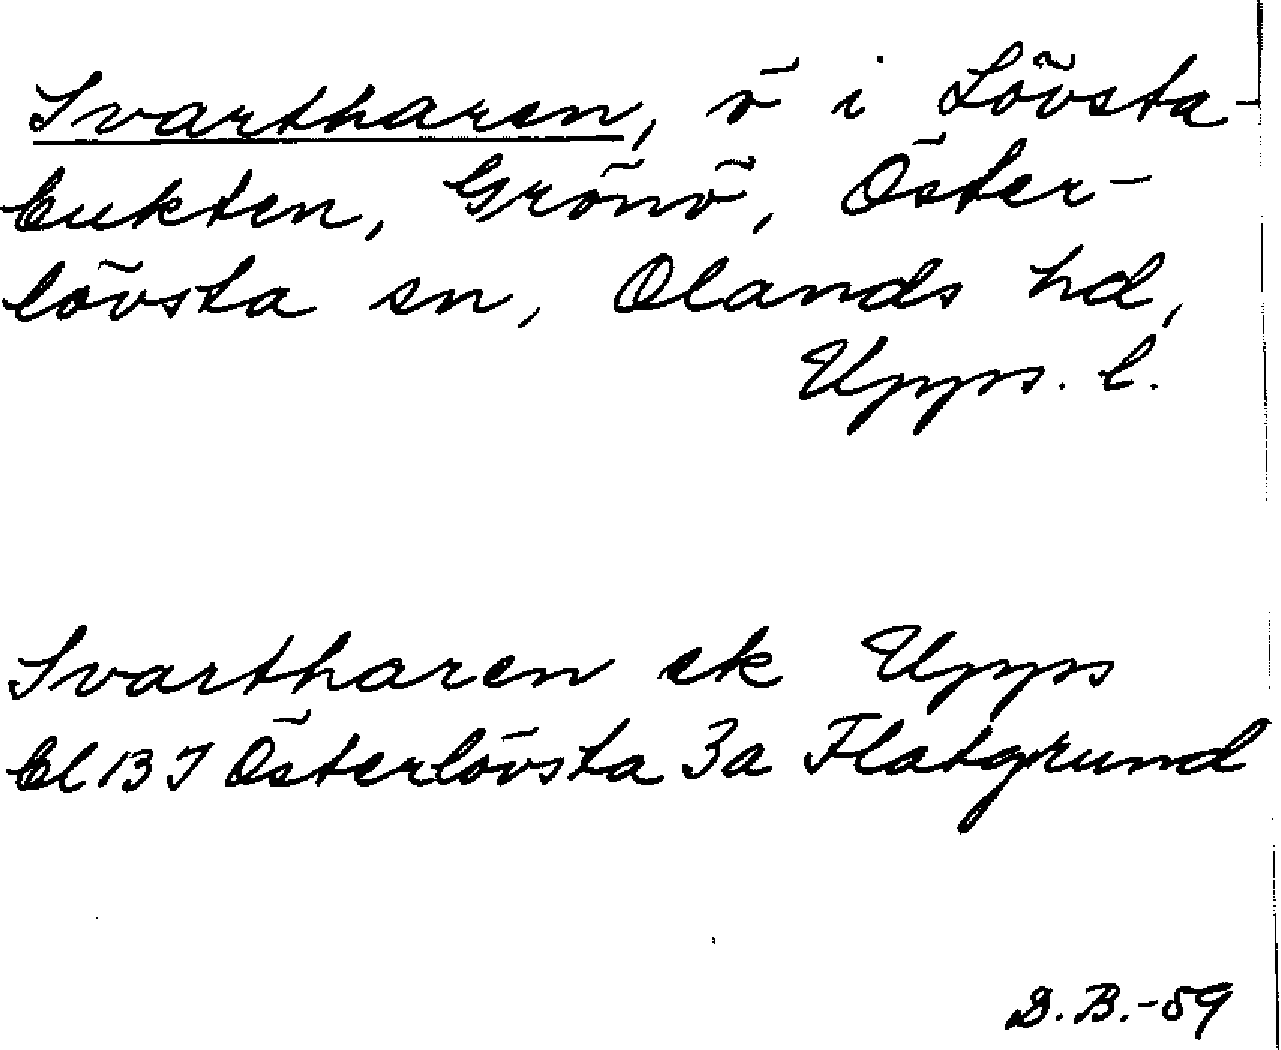 Svartharen, ö i Lövsta-
bukten, Grönö, Öster-
lövsta sn, Olands hd,
Upps. l.
Svartharen ek Upps
bl 13 I Österlövsta 3a Flatgrund
D. B. -59